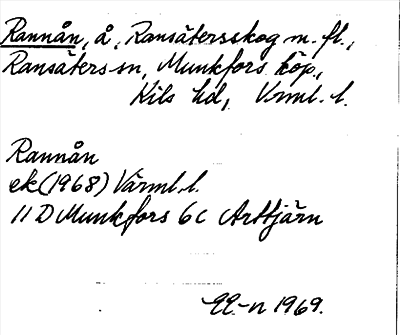 Rannån, å, Ransätersskog m.fl.,
Ransäters sn, Munkfors köp.,
Kils hd, Vrml. l.
Rannån
ek (1968) Värml. l.
11 D Munkfors 6c Arttjärn
1969.